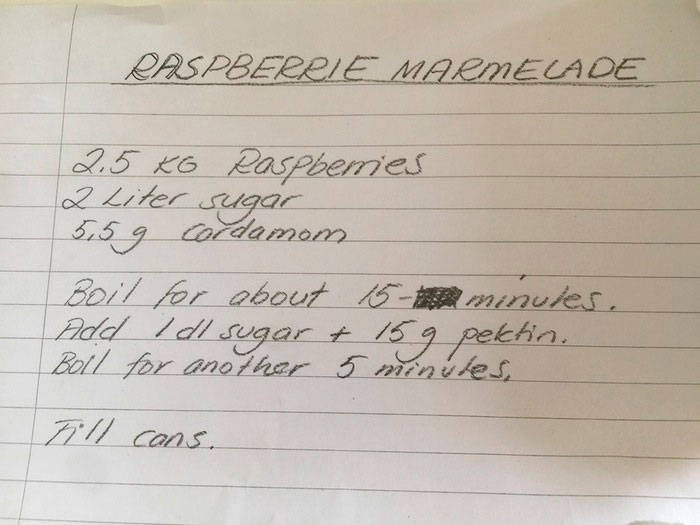 RASPBERRIE MARMELADE
2.5 KG Raspberries
2 Liter sugar
5,5 g cardamom
Boil for about 15- minutes.
Add 1 dl sugar + 15 g pektin.
Boil for another 5 minutes.
Fill cans.